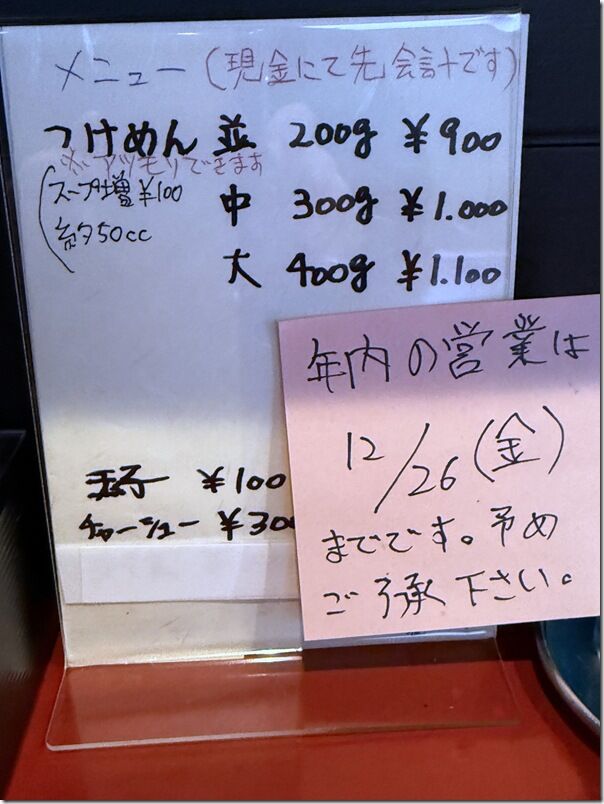 メニュー (現金にて先会計です)
つけめん 並 200g ¥900
※アツモリできます
スープ増 ¥100
約50cc
中 300g ¥1.000
大 400g ¥1.100
玉子 ¥100
チャーシュー ¥300
年内の営業は
12/26(金)
までです。予め
ご了承下さい。